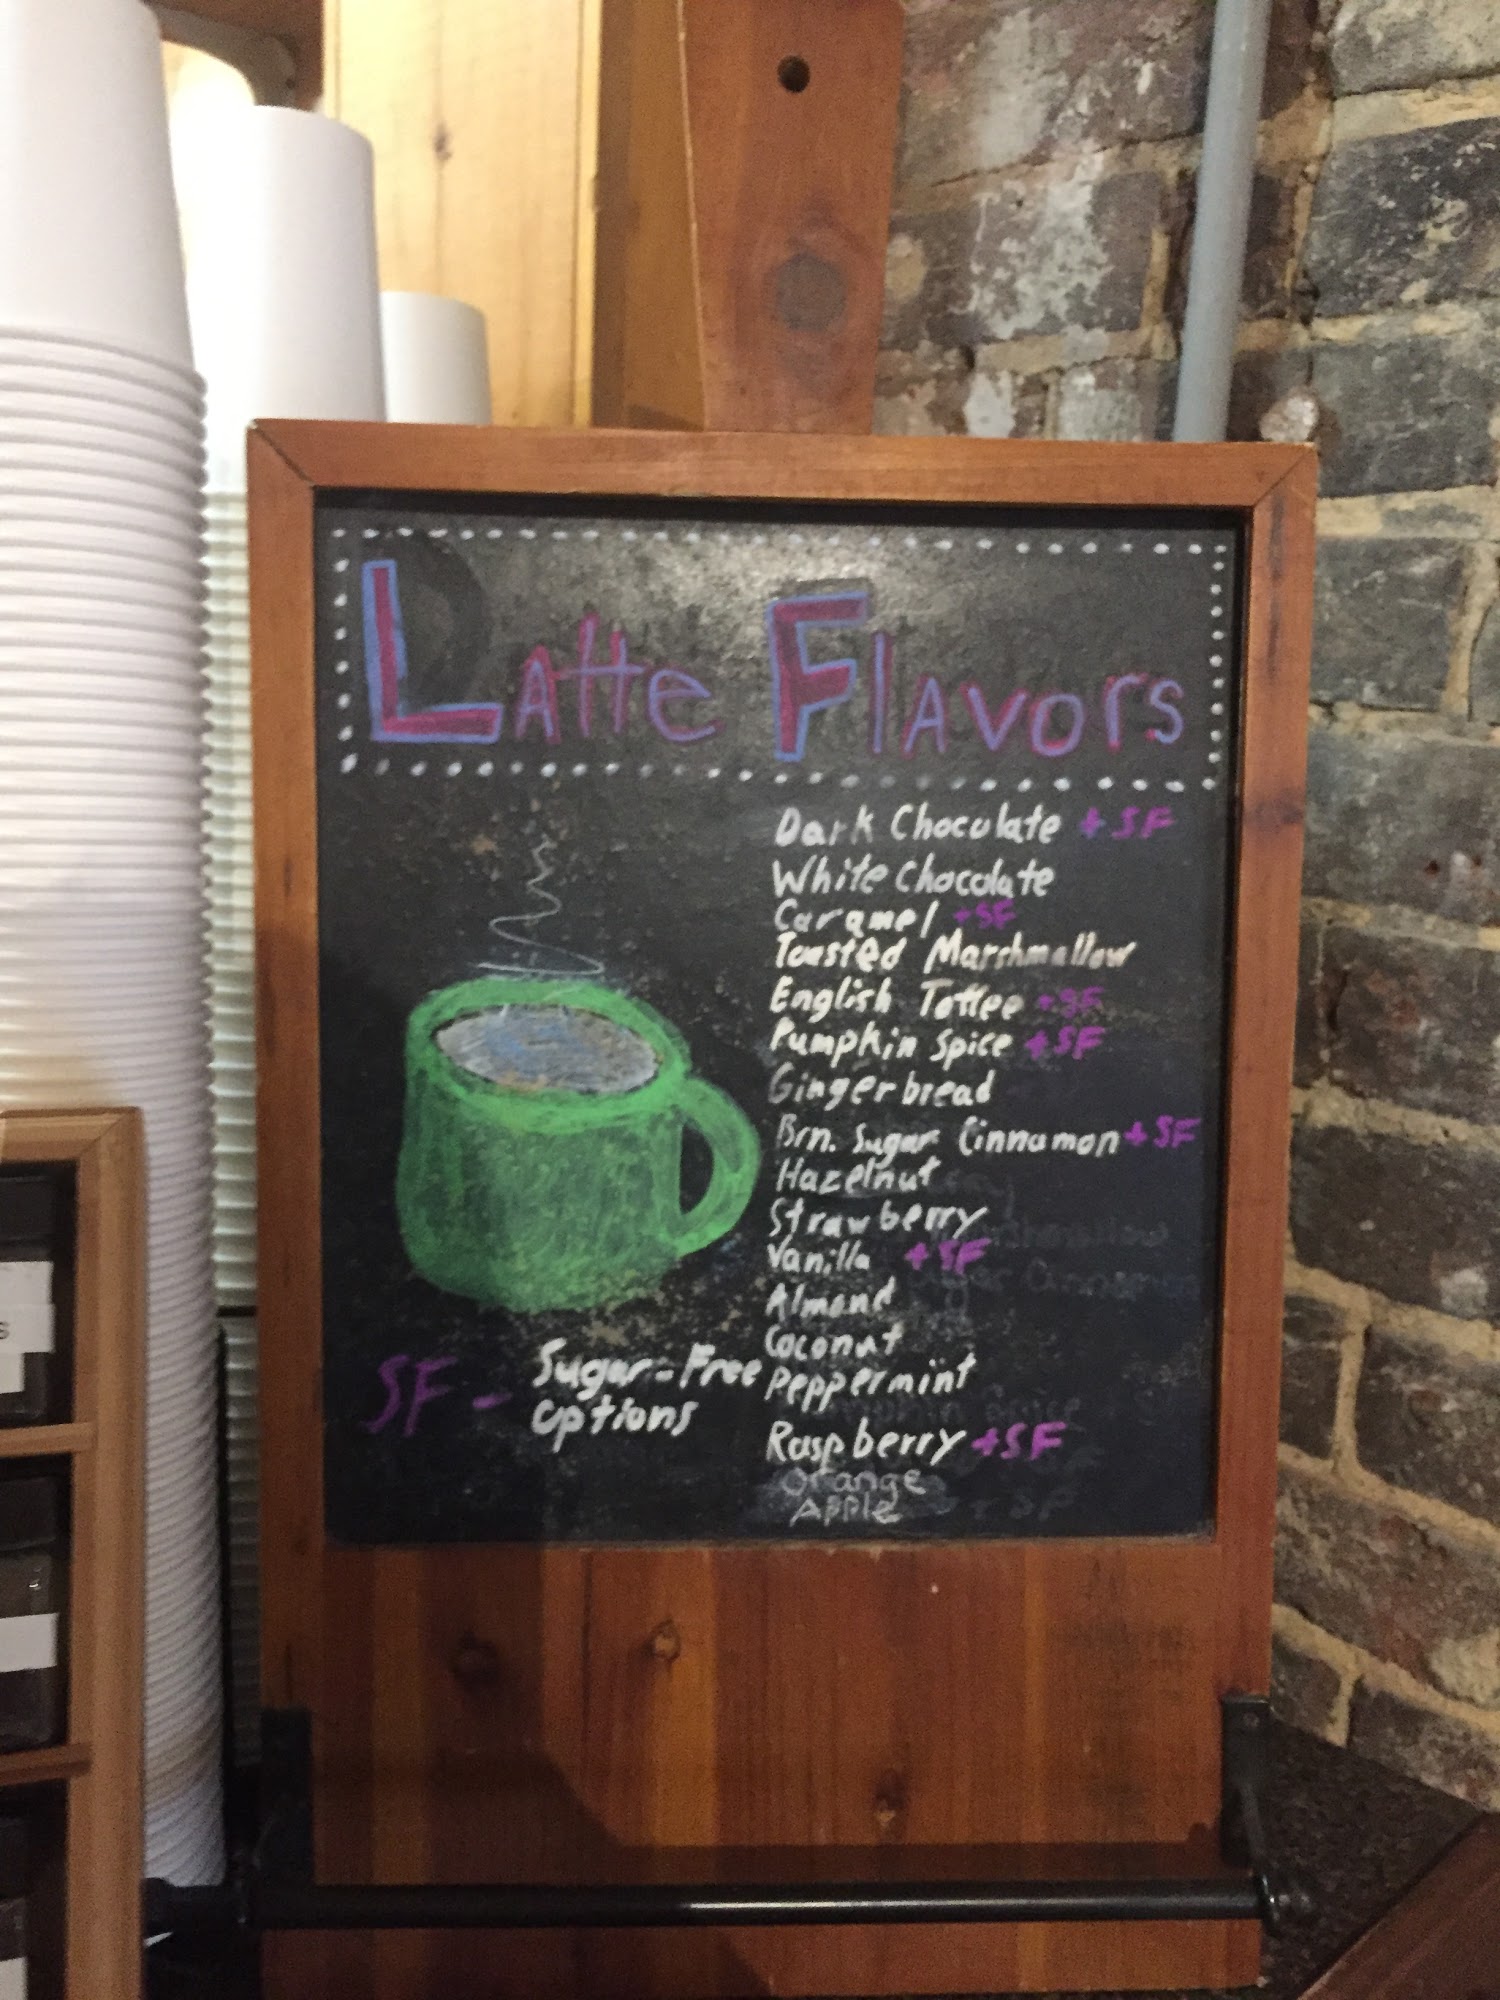 Latte Flavors
Dark Chocolate + SF
White Chocolate
Caramel + SF
Toasted Marshmallow
English Toffee + SF
Pumpkin Spice + SF
Gingerbread
Brn. Sugar Cinnamon + SF
Hazelnut
Strawberry
Vanilla + SF
Almond
Coconut
Peppermint
Raspberry + SF
Orange
Apple
SF - Sugar-Free
options